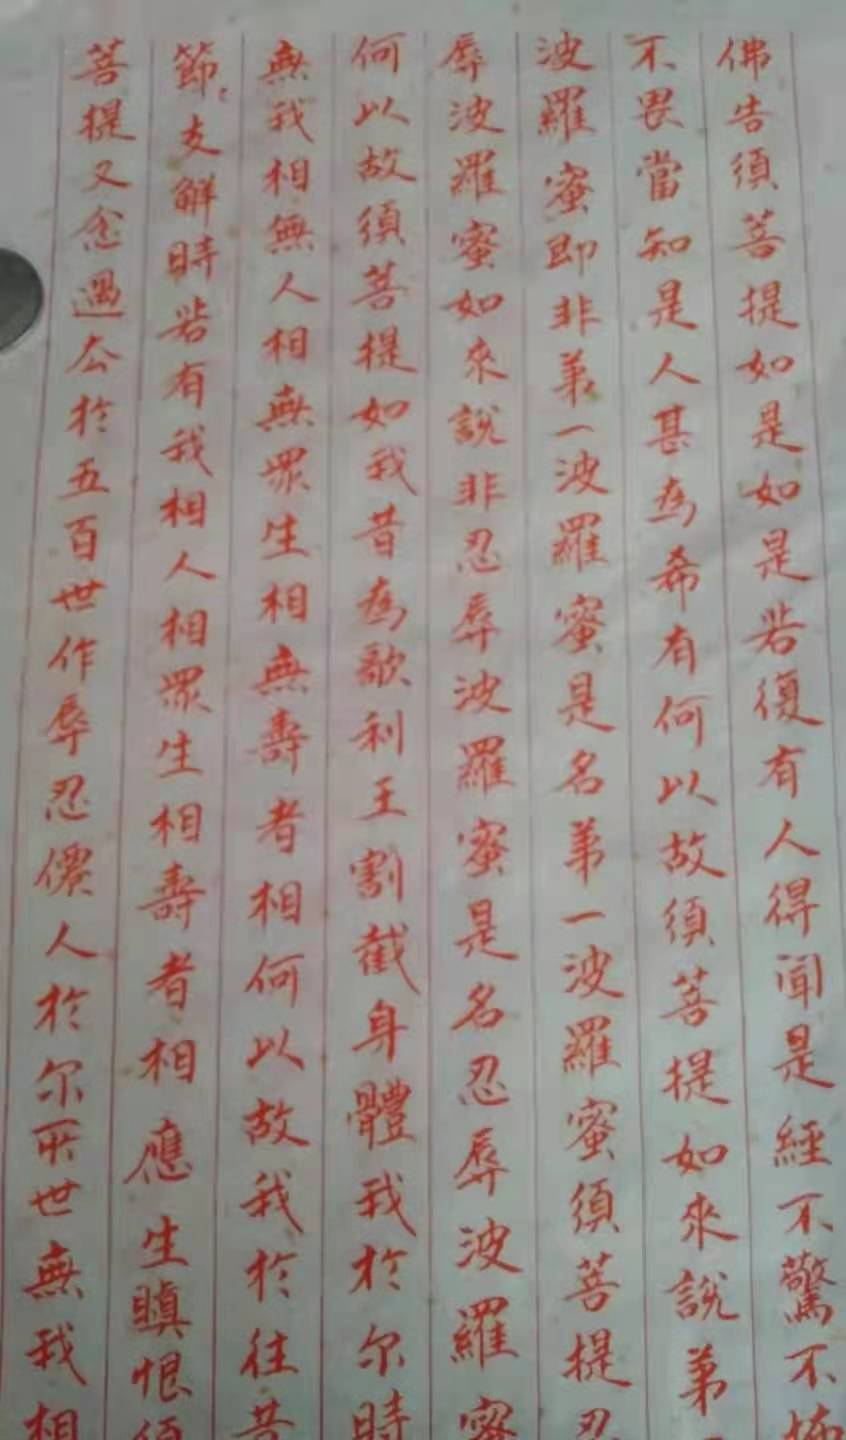 佛告須菩提如是如是若復有人得聞是經不驚不怖
不畏當知是人甚為希有何以故須菩提如來說第一
波羅蜜即非第一波羅蜜是名第一波羅蜜須菩提忍
辱波羅蜜如來說非忍辱波羅蜜是名忍辱波羅蜜
何以故須菩提如我昔為歌利王割截身體我於尔時
無我相無人相無眾生相無壽者相何以故我於往昔
節節支解時若有我相人相眾生相壽者相應生瞋恨須
菩提又念過去於五百世作辱忍僊人於尔所世無我相